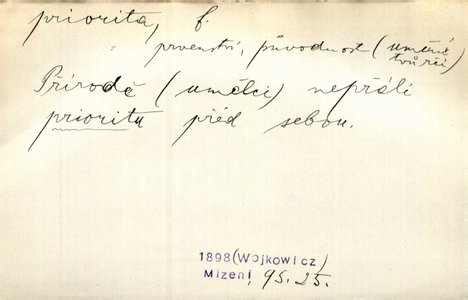 priorita, f.
= prvenství, původnost (umělné
tvůrčí)
Přírodě (umělci) nepřáli
prioritu před sebou.
1898 (Wojkowicz)
Mizení, 95. 25.